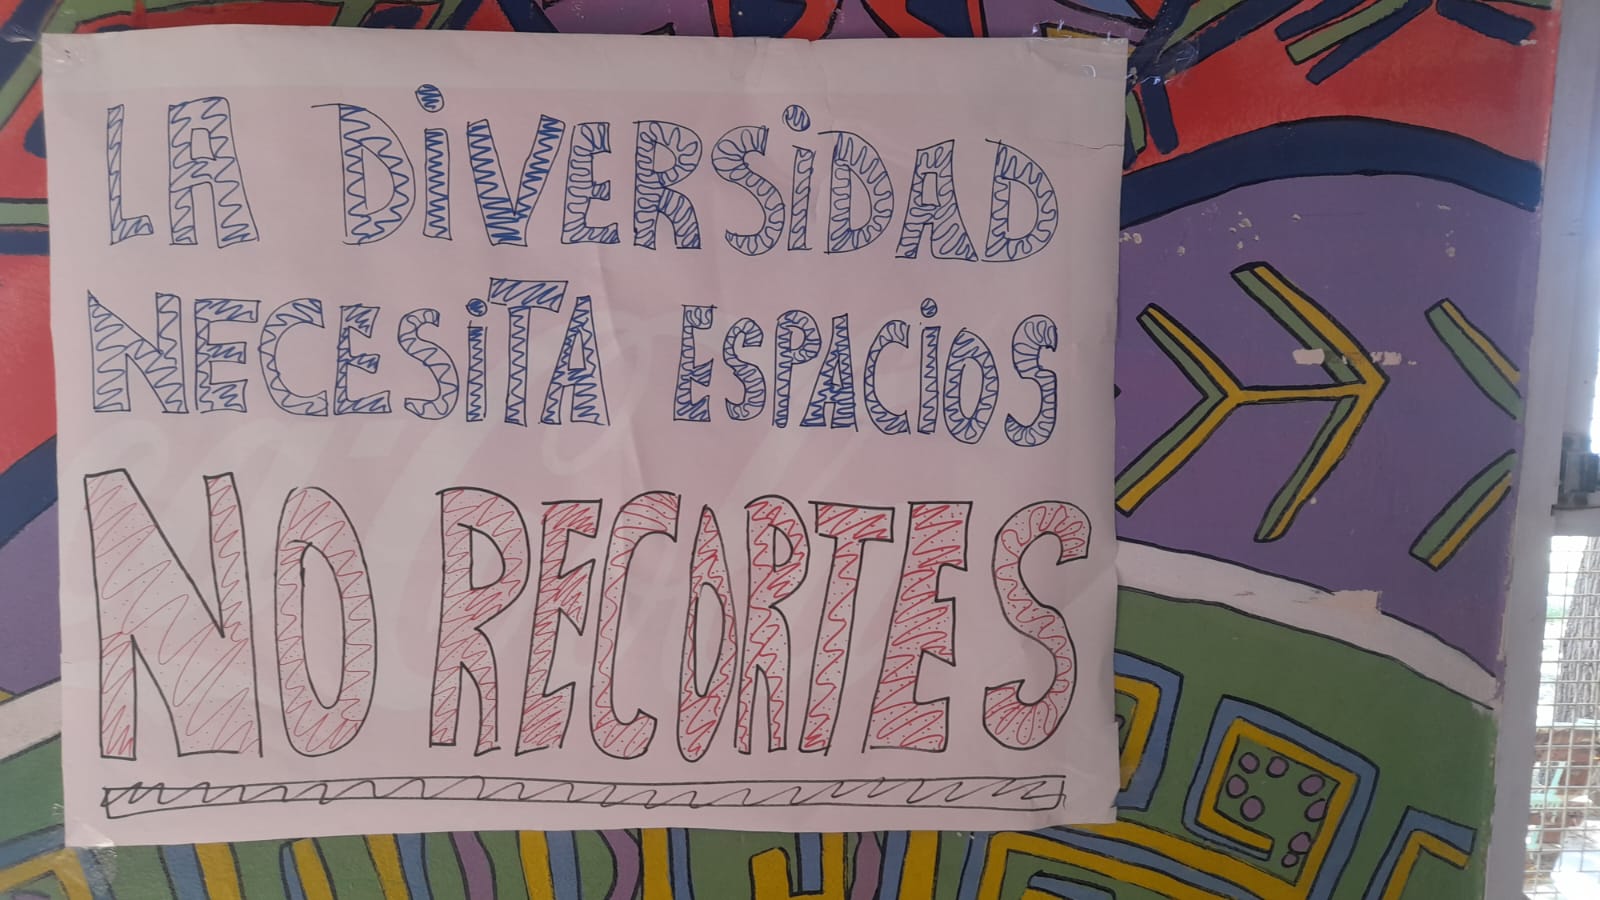 LA DiVERSiDAD
NECESiTA ESPACiOS
NO RECORTES